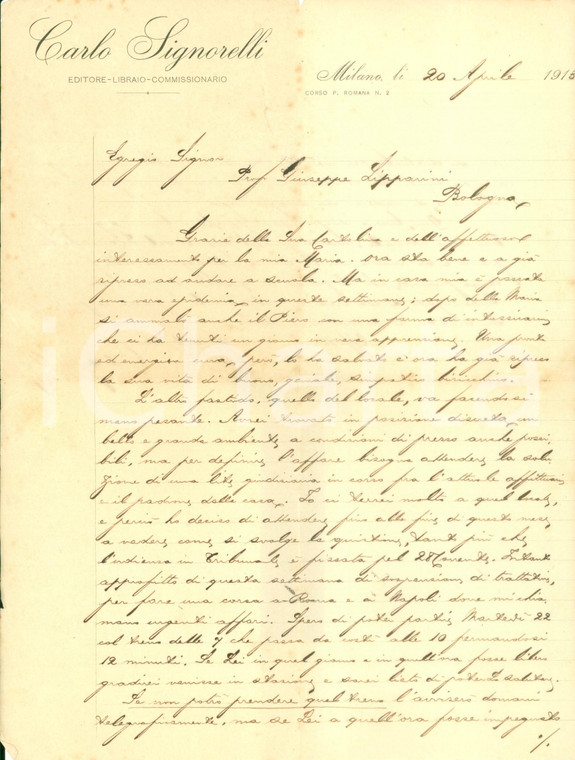 Carlo Signorelli
EDITORE-LIBRAIO-COMMISSIONARIO
Milano, li 20 Aprile 1913
CORSO P. ROMANA N. 2
Egregio Signor
Prof. Giuseppe Lipparini
Bologna
Grazie della Sua Cartolina e dell'affettuoso
interessamento per la mia Maria. Ora sta bene e a già
ripreso ad andare a scuola. Ma in casa mia è passata
una vera epidemia in queste settimane; dopo della Maria
si ammalò anche il Piero con una forma di intossicazione
che ci ha tenuti un giorno in vera apprensione. Una pronta
ed energica cura, però, lo ha salvato e ora ha già ripreso
la sua vita di buono, geniale, simpatico birichino.
L'altro fastidio, quello del locale, va facendosi
meno pesante. Avrei trovato in posizione discreta un
bello e grande ambiente a condizioni di prezzo anche possi-
bili, ma per definire l'affare bisogna attendere la solu-
zione di una lite giudiziaria in corso fra l'attuale affittuario
e il padrone della casa. Io ci terrei molto a quel locale,
e perciò ho deciso di attendere fino alla fine di questo mese
a vedere come si svolge la quistione, tanto più che
l'udienza in Tribunale è fissata pel 28 Corrente. Intanto
approfitto di questa settimana di sospensione di trattative
per fare una corsa a Roma e a Napoli dove mi chia-
mano urgenti affari. Spero di poter partire Martedì 22
col treno delle 7 che passa da costì alle 10 fermandosi
12 minuti. Se Lei in quel giorno e in quell'ora fosse libero
gradirei venisse in stazione e sarei lieto di poterLa salutare.
Se non potrò prendere quel treno l'avviserò domani
telegraficamente, ma se Lei a quell'ora fosse impegnato
./.